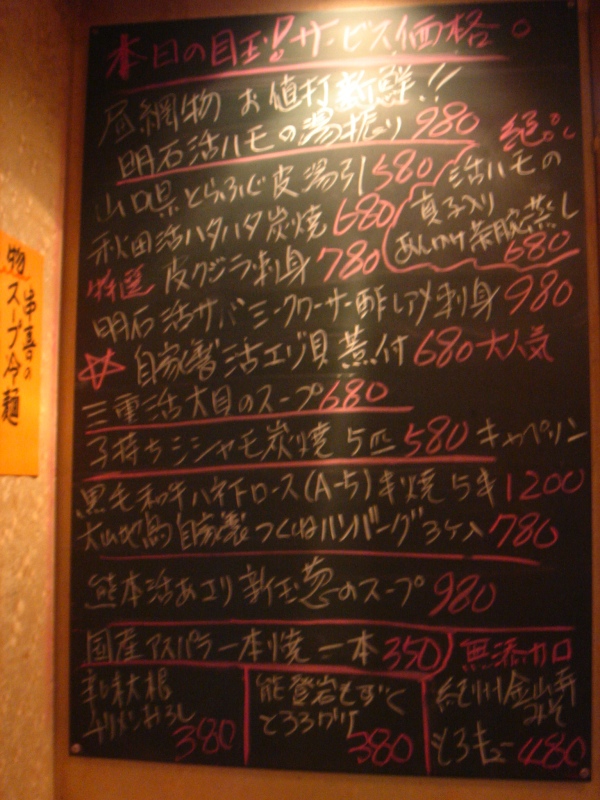 本日の目玉!サービス価格。
昼網物 お値打 新鮮!!
明石活ハモの湯振り 980
絶品
山口県とらふぐ皮湯引 580
活ハモの
真子入り
あんかけ茶腕蒸し
680
秋田活ハタハタ炭焼 680
特選 皮クジラ刺身 780
明石活サバ ミークワーサー酢〆刺身 980
☆ 自家製活エゾ貝煮付 680 大人気
三重活大貝のスープ 680
子持ちシシャモ炭焼 5匹 580 キャペリン
黒毛和牛ハネ下ロース(A-5)串焼 5串 1200
大山地鶏自家製つくねハンバーグ 3ヶ入 780
熊本活あさり 新玉葱のスープ 980
国産アスパラ一本焼 一本 350
無添加
辛味大根
チリメンおろし
380
能登岩もずく
とろろ
380
紀州金山寺
みそ
もろキュー 480
串喜の
スープ冷麺